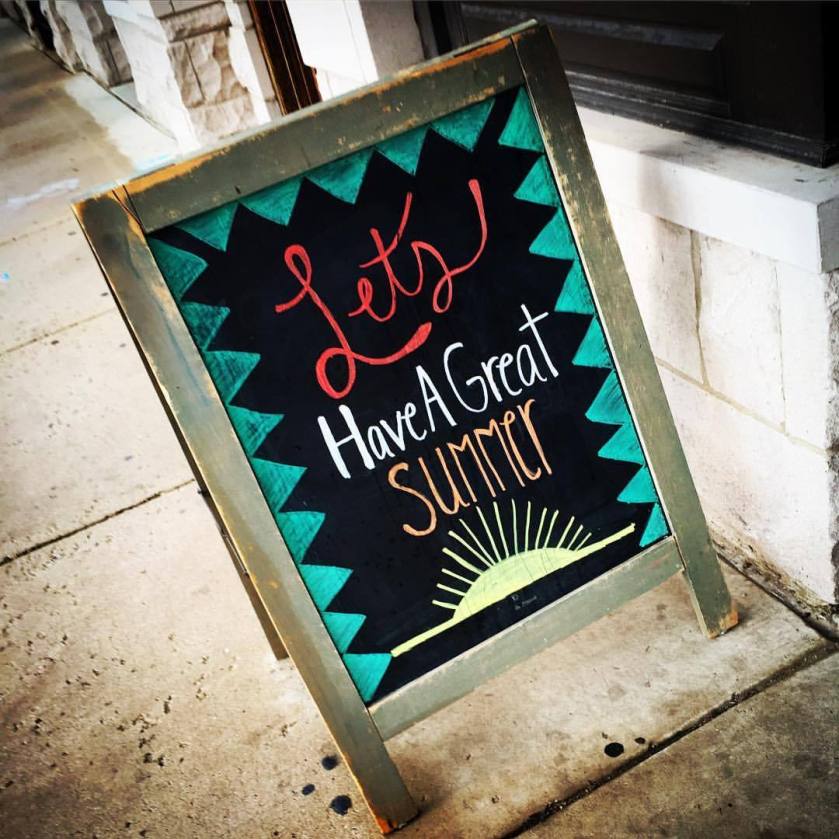 Lets
Have A Great
Summer